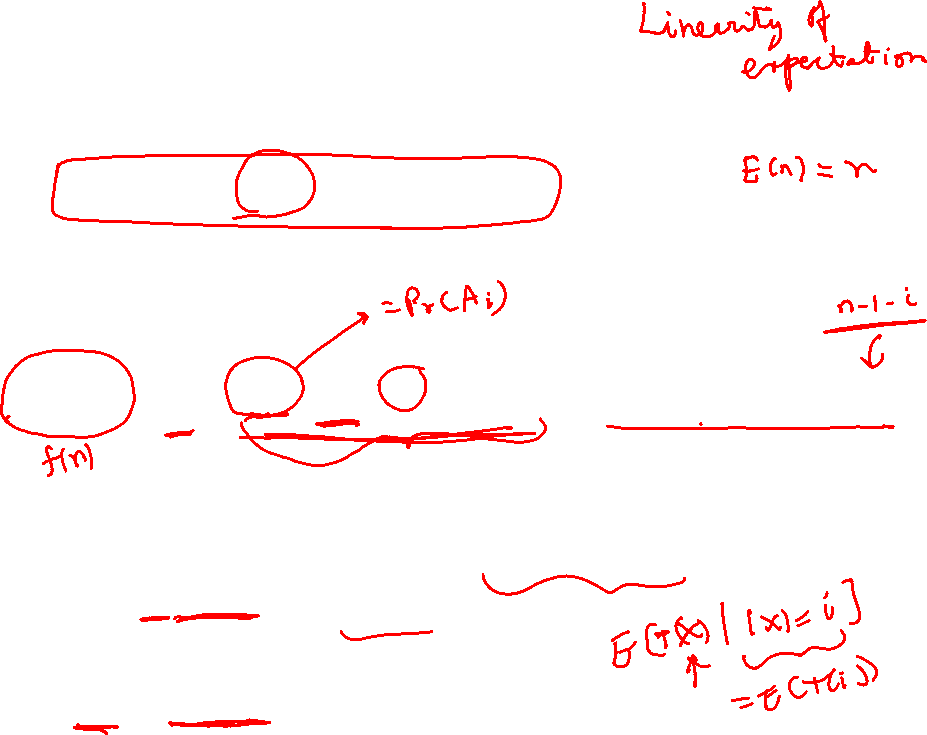 Linearity of
expectation
E(n) = n
= Pr(Ai)
n-1-i
f(n)
E[T(x) | |x| = i]
= E(T(i))